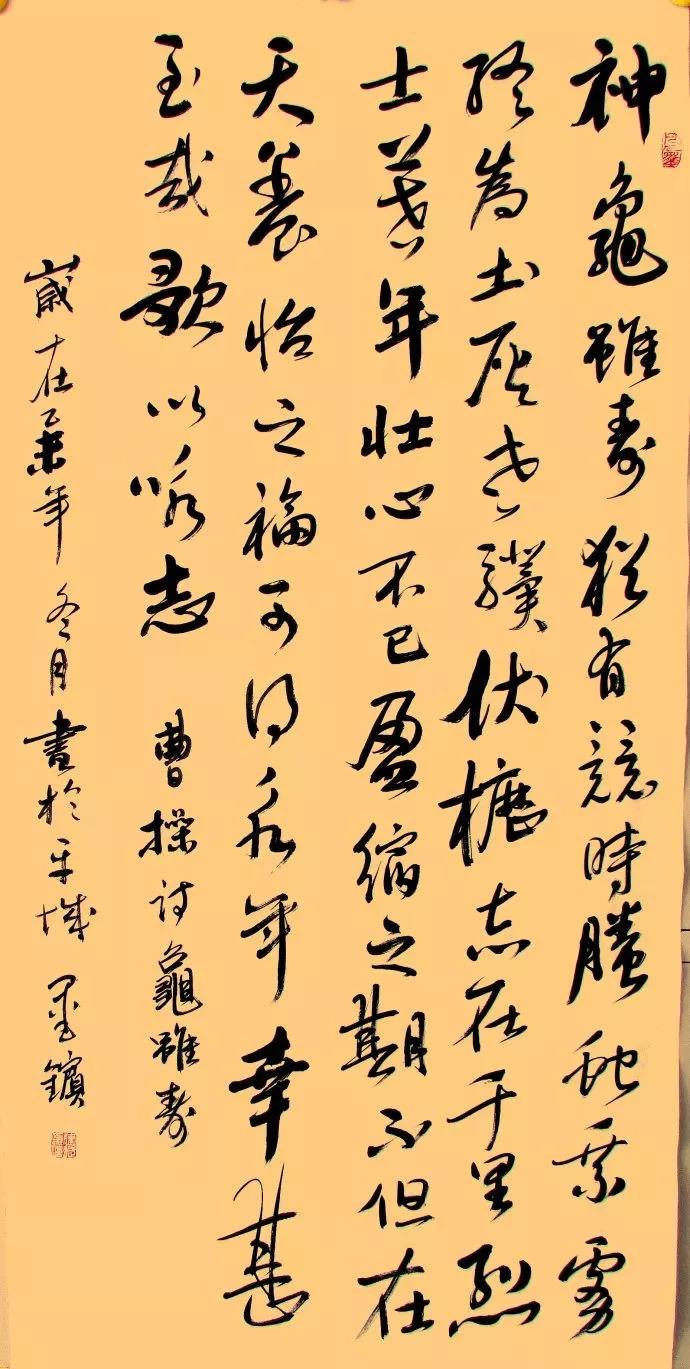 神龜雖寿猶有競時螣蛇乘雾
终為土灰老驥伏櫪志在千里烈
士暮年壮心不已盈缩之期不但在
天養怡之福可得永年幸甚
至哉歌以咏志 曹操诗龜雖寿
歲在乙未年冬月書於平城 墨鑌